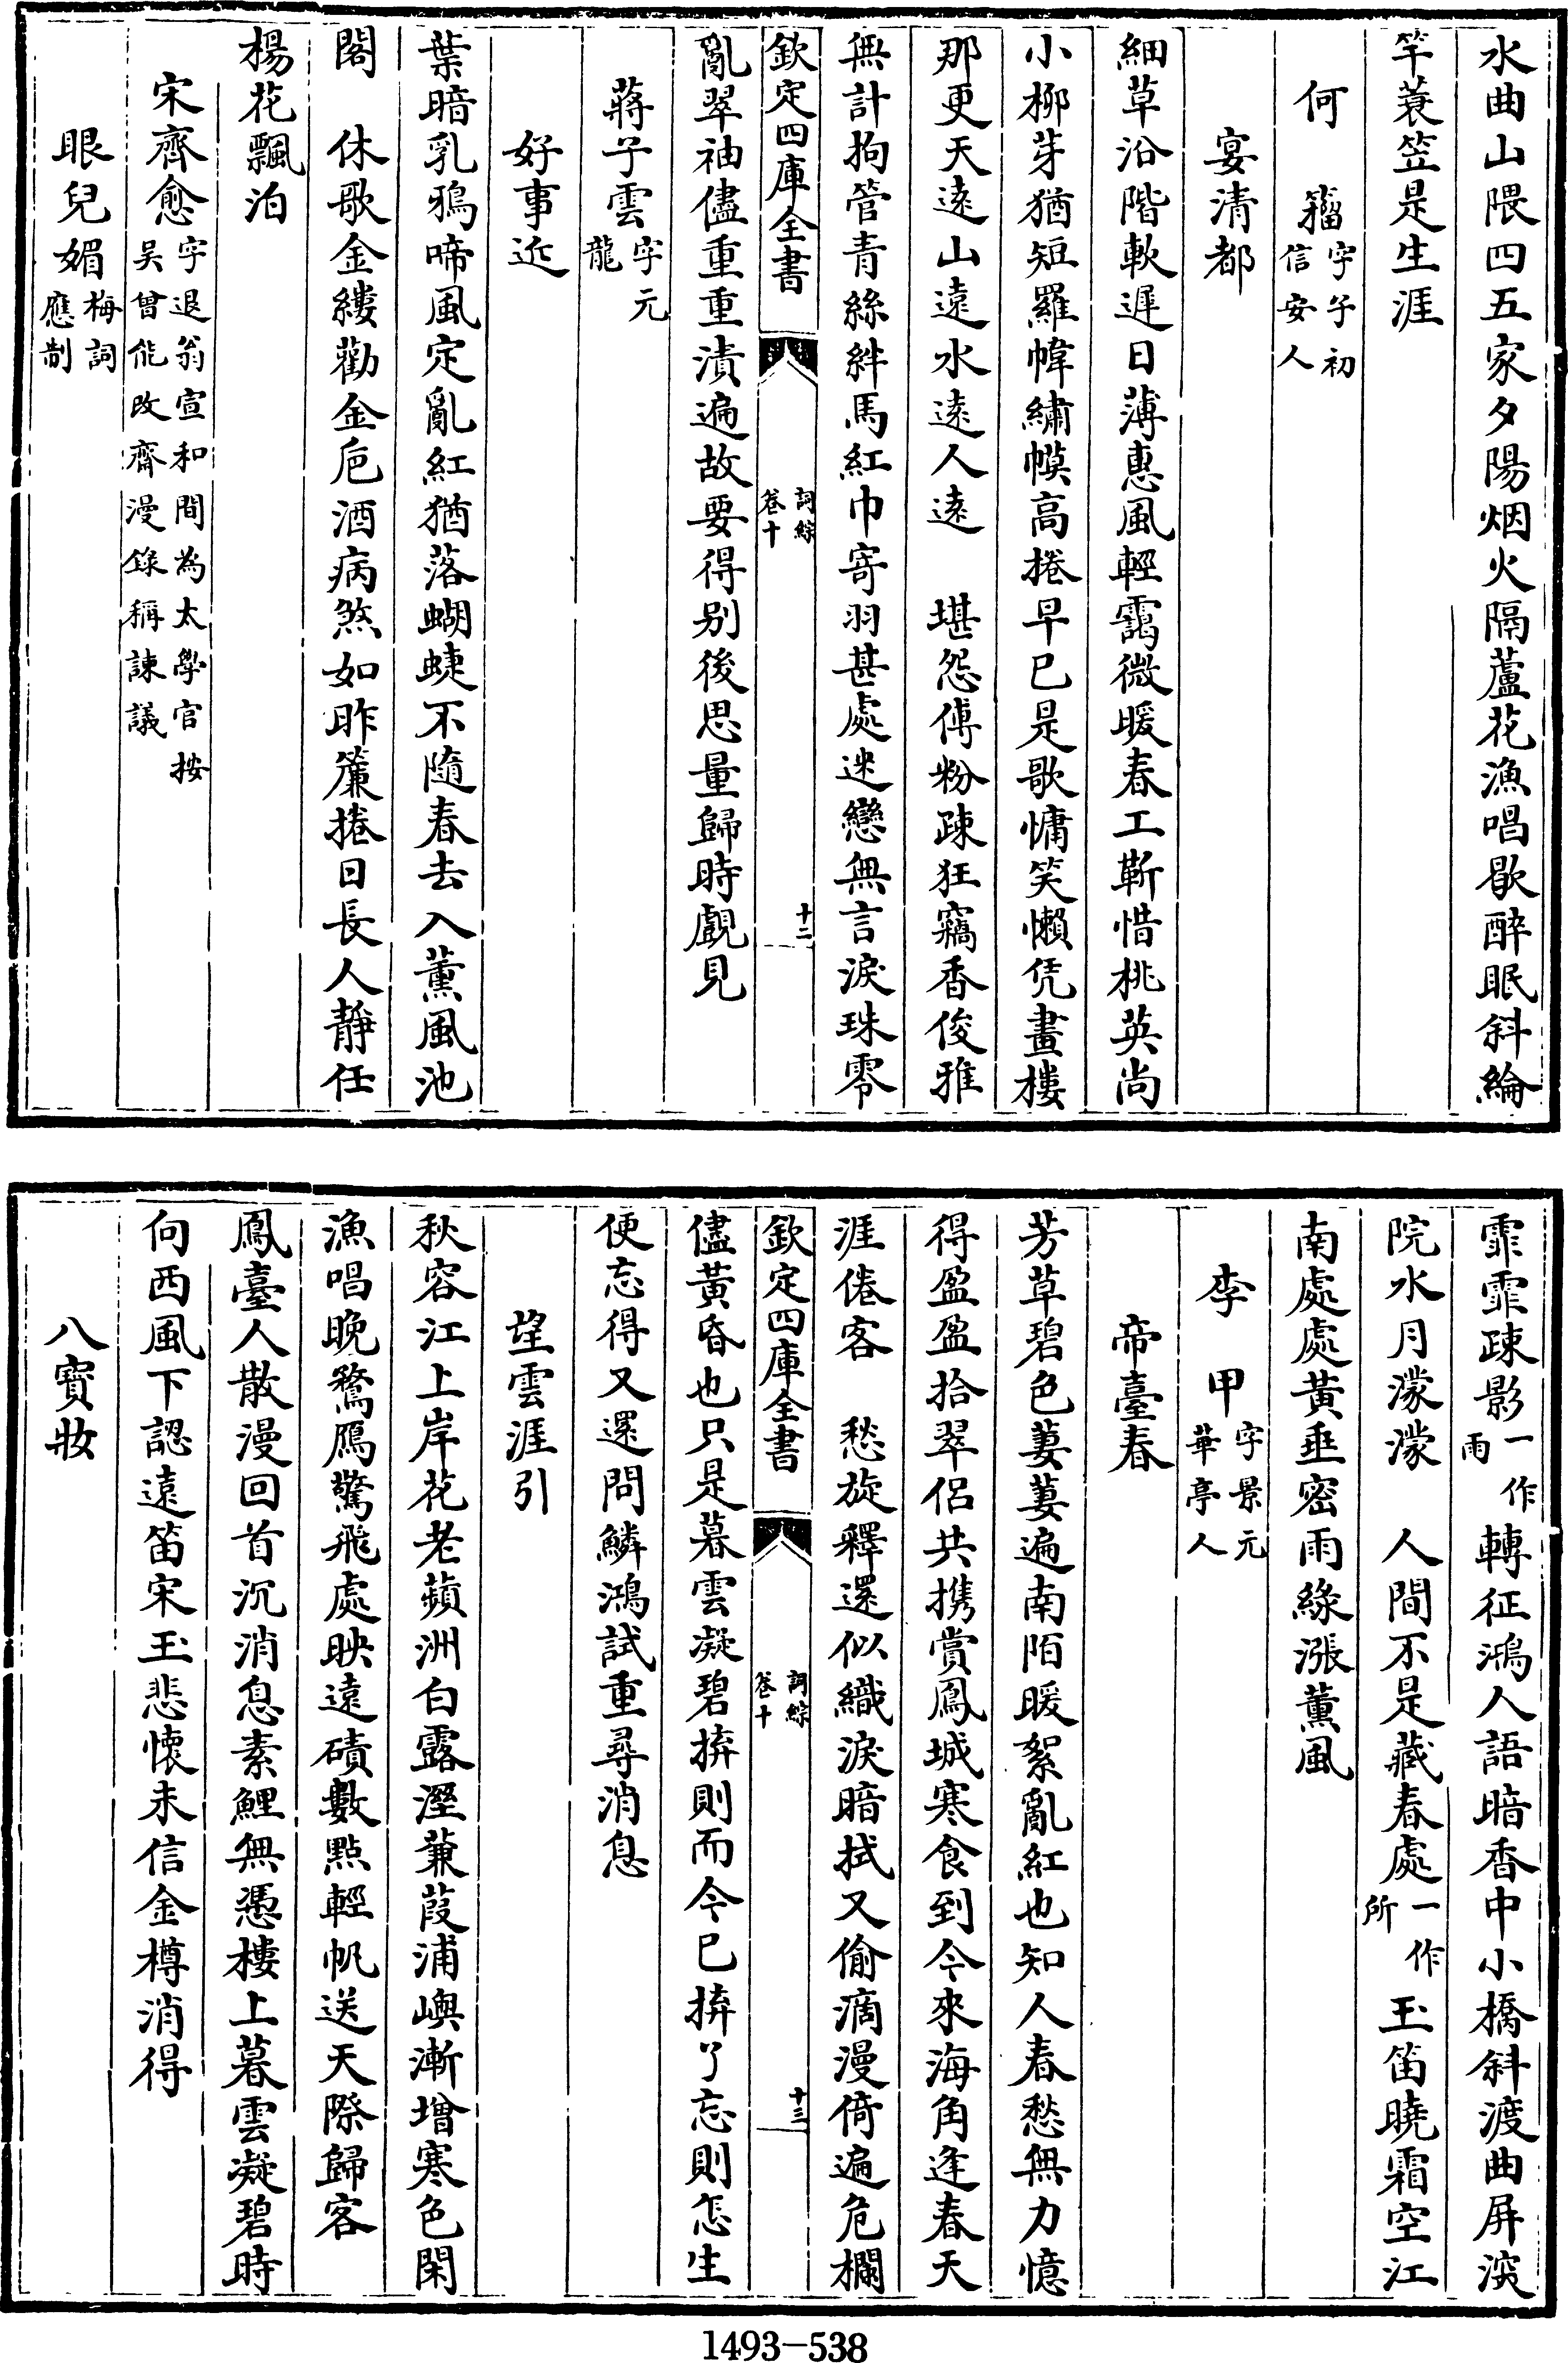 水曲山隈四五家夕陽烟火隔蘆花漁唱歇醉眠斜綸
竿蓑笠是生涯
何　籀字子初信安人
宴清都
細草沿階軟遲日薄惠風輕靄微暖春工靳惜桃英尚
小柳芽猶短羅幃繡幙高捲早已是歌慵笑懶凭畫樓
那更天遠山遠水遠人遠　堪怨傅粉疎狂竊香俊雅
無計拘管青絲絆馬紅巾寄羽甚處迷戀無言淚珠零
欽定四庫全書　詞綜卷十　十二
亂翠袖儘重重漬遍故要得别後思量歸時覷見
蔣子雲字元龍
好事近
葉暗乳鴉啼風定亂紅猶落蝴蜨不隨春去入薰風池
閣　休歌金縷勸金巵酒病煞如昨簾捲日長人靜任
楊花飄泊
宋齊愈字退翁宣和間為太學官按吴曾能改齋漫錄稱諫議
眼兒媚梅詞應制
霏霏疎影一作雨轉征鴻人語暗香中小橋斜渡曲屏深
院水月濛濛　人間不是藏春處一作所玉笛曉霜空江
南處處黃垂密雨綠漲薰風
李　甲字景元華亭人
帝臺春
芳草碧色萋萋遍南陌暖絮亂紅也知人春愁無力憶
得盈盈拾翠侶共携賞鳳城寒食到今來海角逢春天
涯倦客　愁旋釋還似織淚暗拭又偷滴漫倚遍危欄
欽定四庫全書　詞綜卷十　十三
儘黃昏也只是暮雲凝碧拚則而今已拚了忘則怎生
便忘得又還問鱗鴻試重尋消息
望雲涯引
秋容江上岸花老蘋洲白露溼蒹葭浦嶼漸增寒色閑
漁唱晚鶩鴈驚飛處映遠磧數點輕帆送天際歸客
鳳臺人散漫回首沉消息素鯉無憑樓上暮雲凝碧時
向西風下認遠笛宋玉悲懷未信金樽消得
八寶妝
1493-538